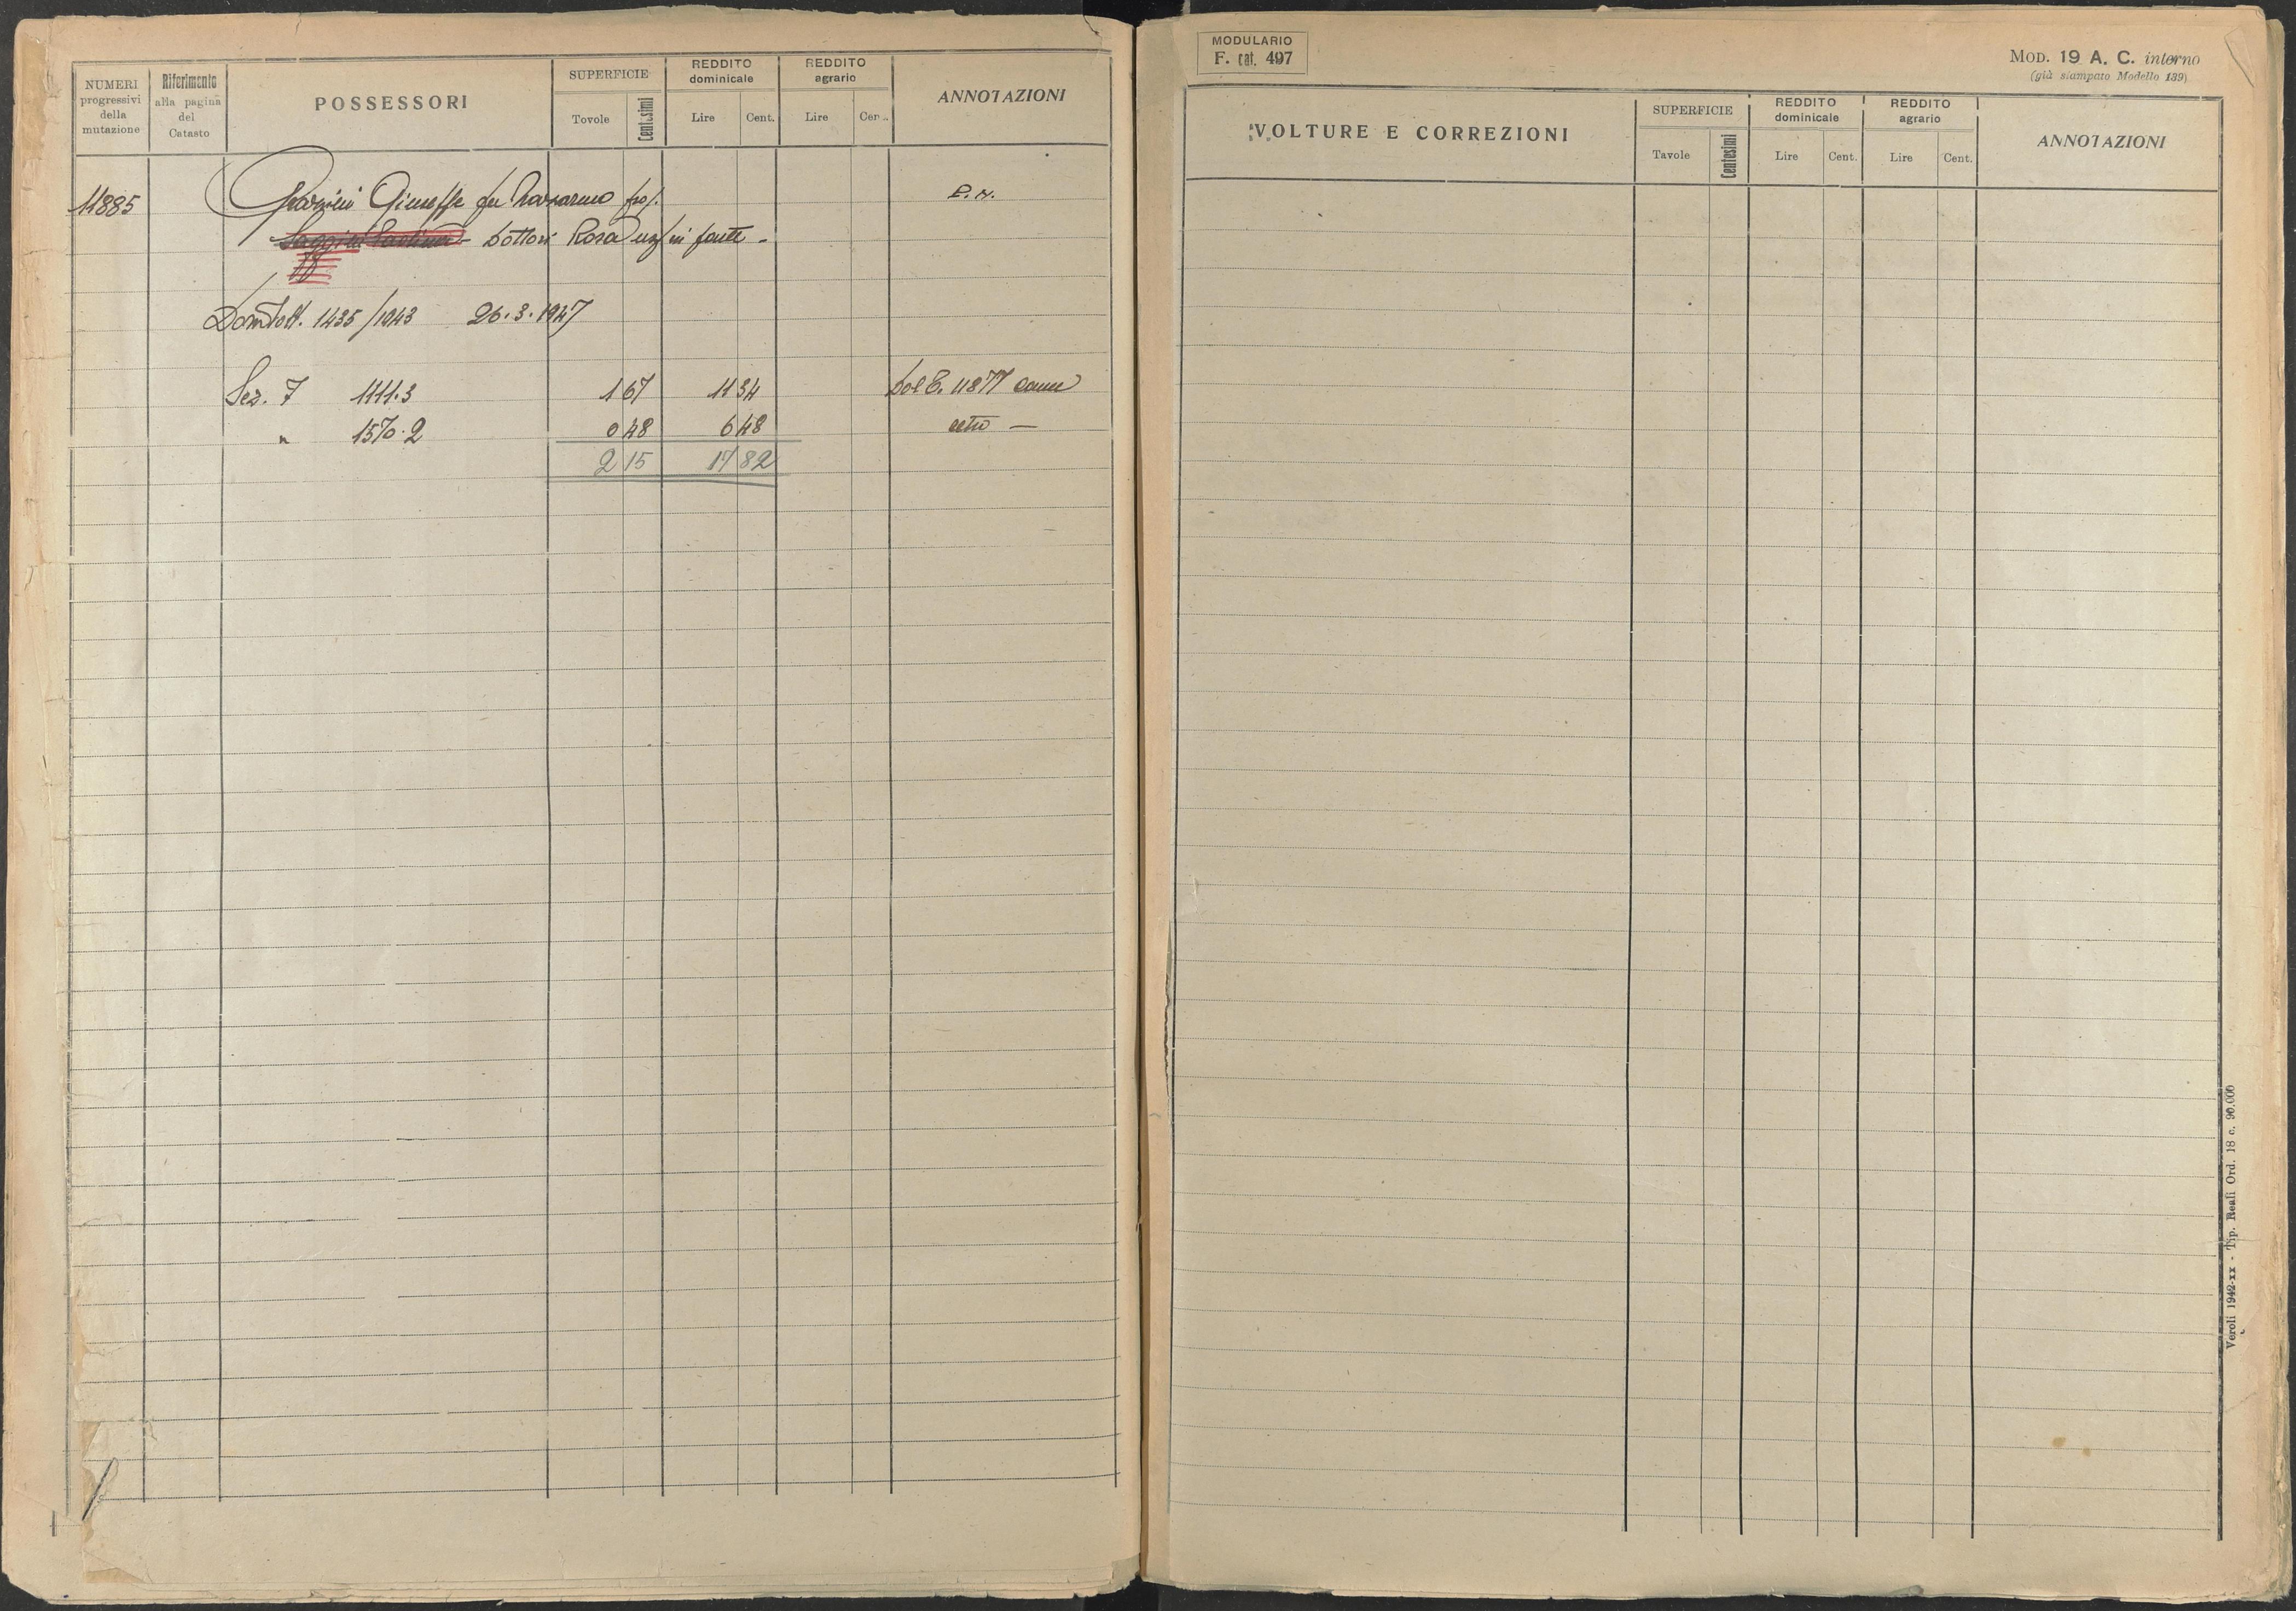 NUMERI progressivi della mutazione
Riferimento alla pagina del Catasto
POSSESSORI
SUPERFICIE
Tovole
Centesimi
REDDITO dominicale
Lire
Cent.
REDDITO agrario
Lire
Cen..
ANNOTAZIONI
11885
Giuseppe fu prop.
P. N.
Dottori Rosa usf in parte -
1435/1943 26.3.1947
Sez. 7 1111.3 1 67 11 34 Dal C. 11877
" 1570.2 0 48 6 48 retro —
2 15 17 82
MODULARIO
F. cat. 497
MOD. 19 A. C. interno
(già stampato Modello 139)
VOLTURE E CORREZIONI
SUPERFICIE
Tavole
Centesimi
REDDITO dominicale
Lire
Cent.
REDDITO agrario
Lire
Cent.
ANNOTAZIONI
Veroli 1942-XX - Tip. Reali Ord. 18 c. 90.000